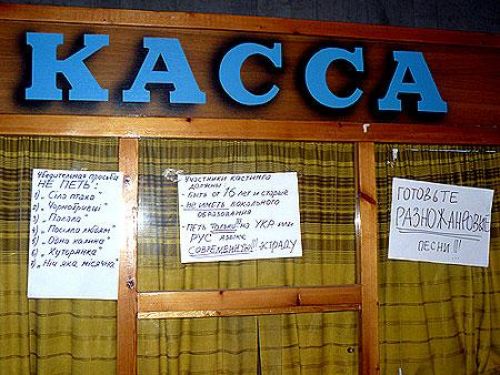 КАССА
Убедительная просьба
НЕ ПЕТЬ:
1) „Сіла птаха"
2) „Чорнобривці"
3) „Палала"
4) „Посилала любові"
5) „Одна калина"
6) „Хуторянка"
7) „Ніч яка місячна"
Участники кастинга
должны
- БЫТЬ ОТ 16 ЛЕТ И СТАРШЕ
- НЕ ИМЕТЬ вокального
образования
- ПЕТЬ только!!! на УКР или
РУС языке,
СОВРЕМЕННУЮ!!! ЭСТРАДУ
ГОТОВЬТЕ
РАЗНОЖАНРОВЫЕ
ПЕСНИ!!!